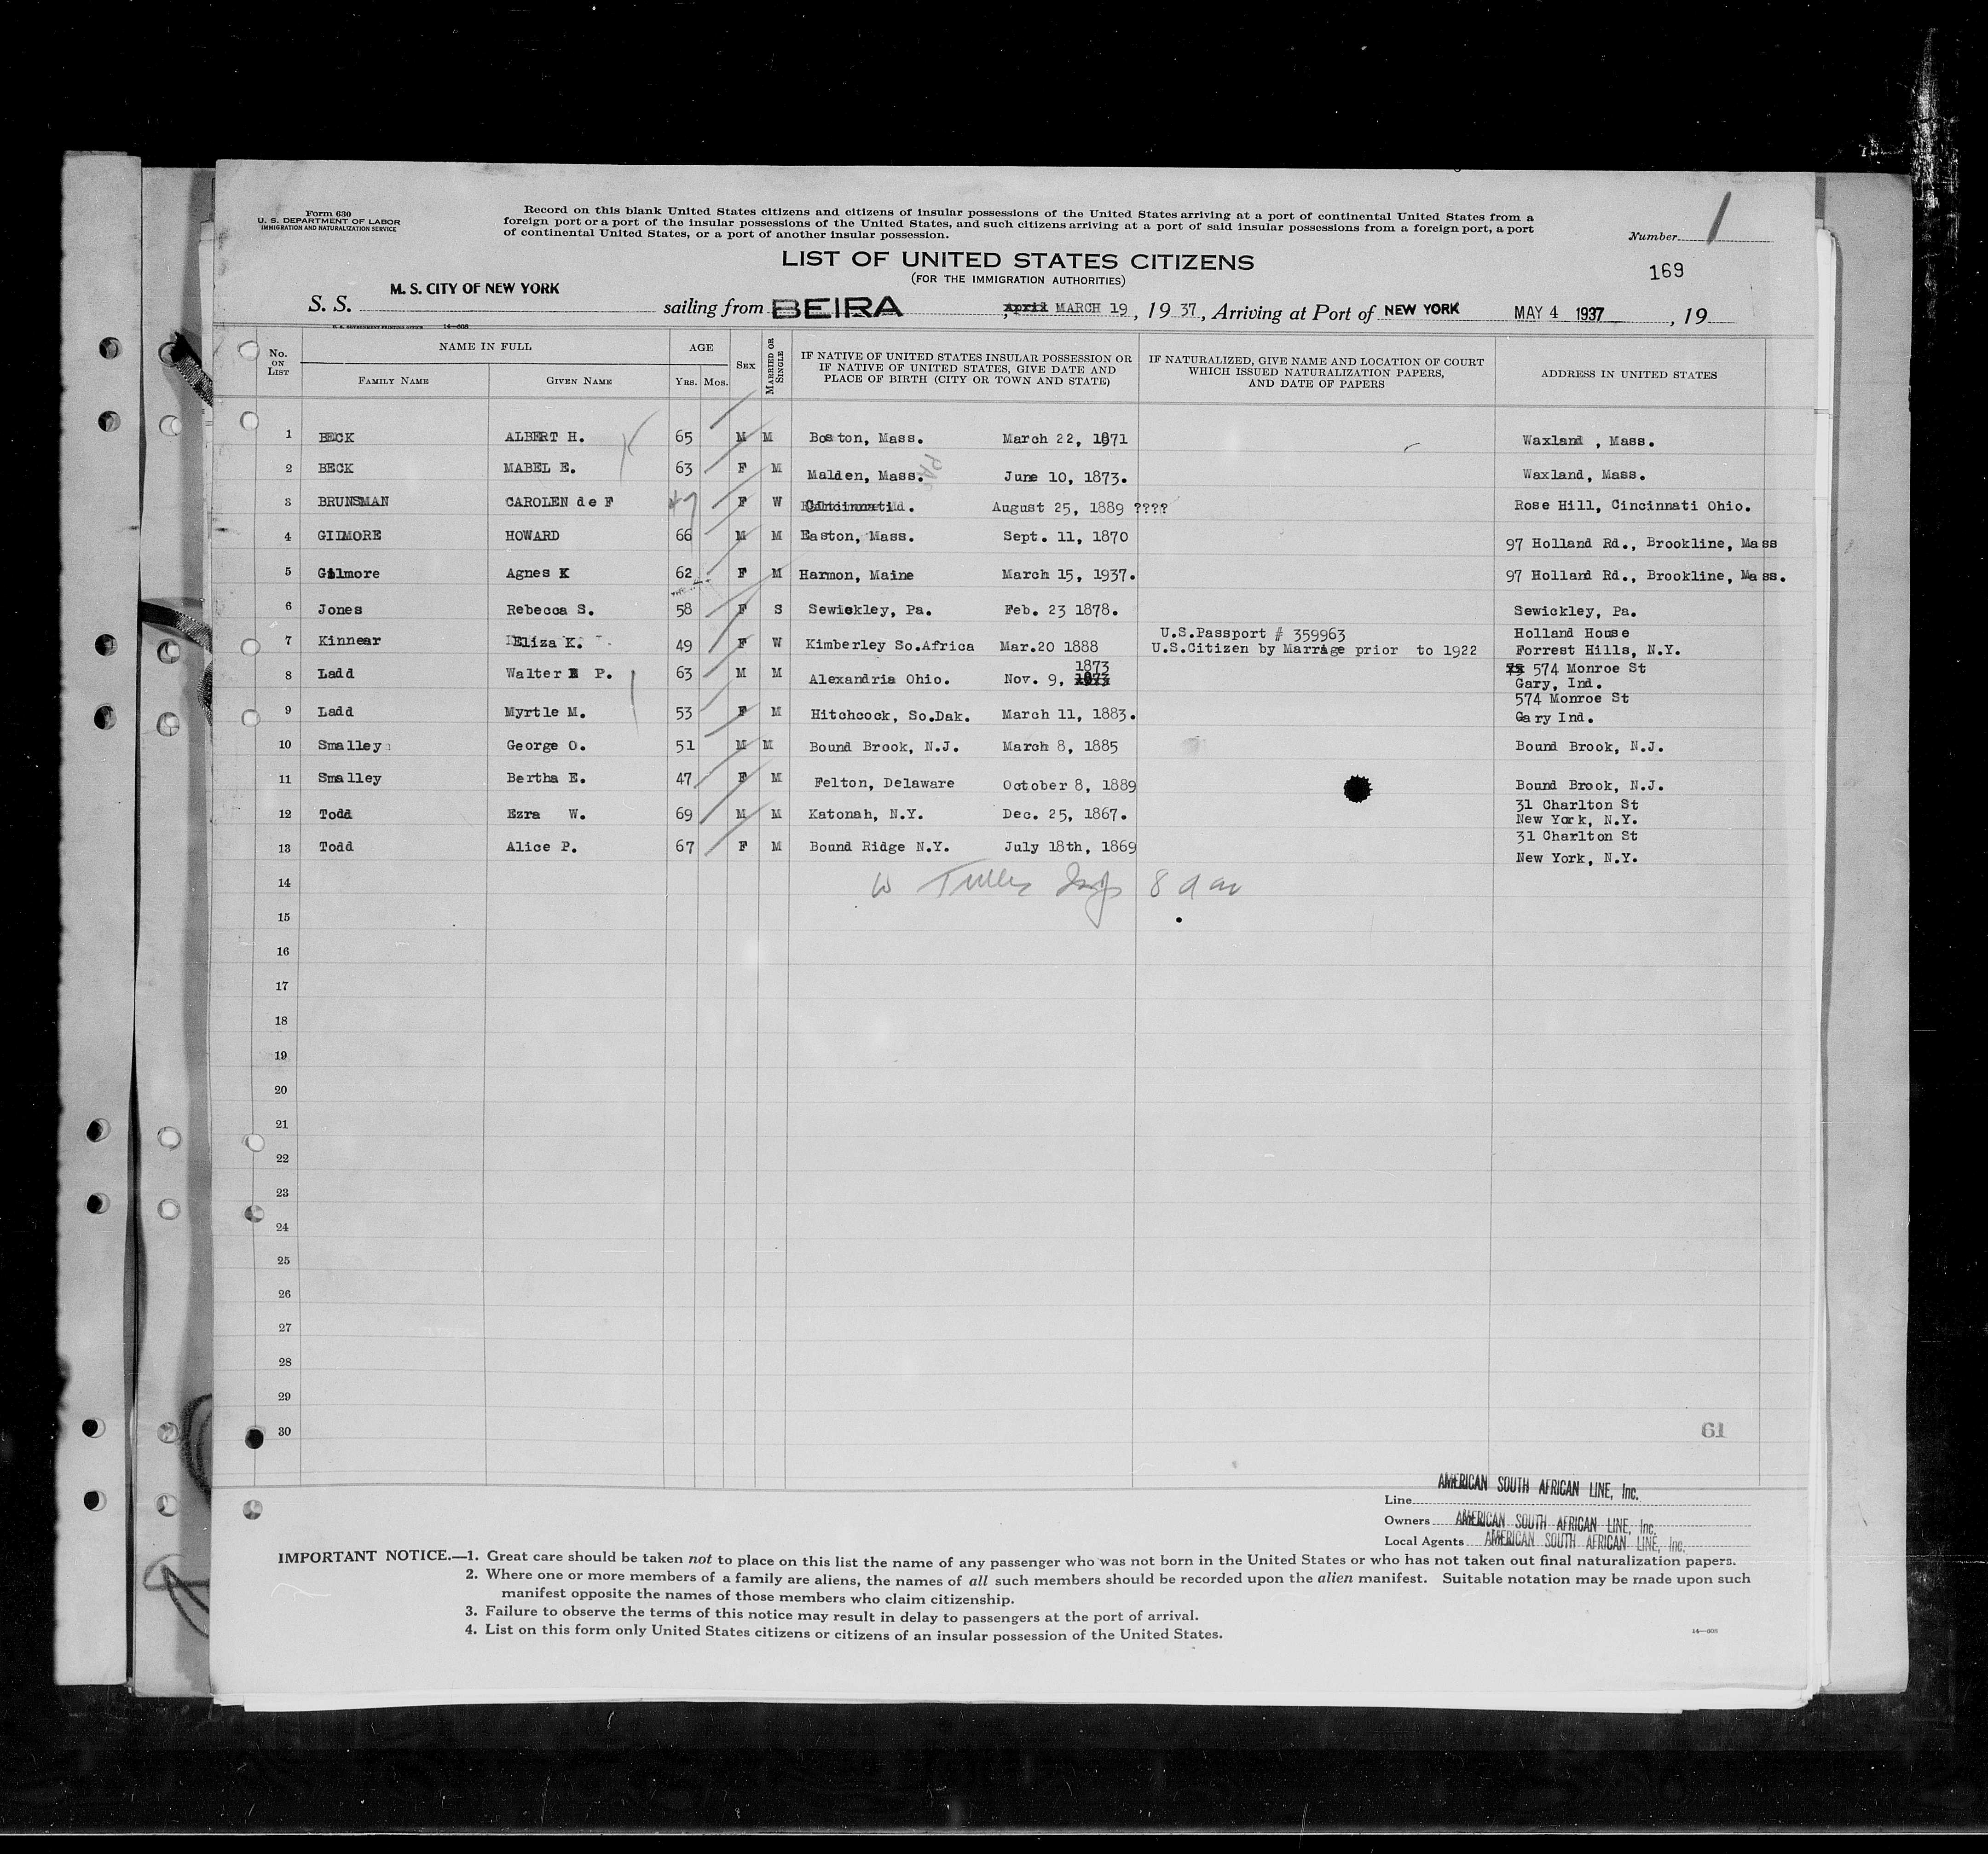 Form 630
U. S. DEPARTMENT OF LABOR
IMMIGRATION AND NATURALIZATION SERVICE
Record on this blank United States citizens and citizens of insular possessions of the United States arriving at a port of continental United States from a
foreign port or a port of the insular possessions of the United States, and such citizens arriving at a port of said insular possessions from a foreign port, a port
of continental United States, or a port of another insular possession.
Number 1
169
LIST OF UNITED STATES CITIZENS
(FOR THE IMMIGRATION AUTHORITIES)
S. S. M. S. CITY OF NEW YORK sailing from BEIRA, April MARCH 19, 19 37, Arriving at Port of NEW YORK MAY 4 1937, 19
U. S. GOVERNMENT PRINTING OFFICE 14—608
No. ON LIST NAME IN FULL AGE SEX MARRIED OR SINGLE IF NATIVE OF UNITED STATES INSULAR POSSESSION OR IF NATIVE OF UNITED STATES, GIVE DATE AND PLACE OF BIRTH (CITY OR TOWN AND STATE) IF NATURALIZED, GIVE NAME AND LOCATION OF COURT WHICH ISSUED NATURALIZATION PAPERS, AND DATE OF PAPERS ADDRESS IN UNITED STATES
FAMILY NAME GIVEN NAME YRS. MOS.
1 BECK ALBERT H. 65 M M Boston, Mass. March 22, 1871 Waxland , Mass.
2 BECK MABEL E. 63 F M Malden, Mass. June 10, 1873. Waxland, Mass.
3 BRUNSMAN CAROLEN de F 47 F W Cincinnati August 25, 1889 ???? Rose Hill, Cincinnati Ohio.
4 GILMORE HOWARD 66 M M Easton, Mass. Sept. 11, 1870 97 Holland Rd., Brookline, Mass
5 Gilmore Agnes K 62 F M Harmon, Maine March 15, 1937. 97 Holland Rd., Brookline, Mass.
6 Jones Rebecca S. 58 F S Sewickley, Pa. Feb. 23 1878. Sewickley, Pa.
7 Kinnear Eliza K. 49 F W Kimberley So.Africa Mar.20 1888 U.S.Passport # 359963 Holland House
U.S.Citizen by Marriage prior to 1922 Forrest Hills, N.Y.
8 Ladd Walter P. 63 M M Alexandria Ohio. Nov. 9, 1873 574 Monroe St
Gary, Ind.
9 Ladd Myrtle M. 53 F M Hitchcock, So.Dak. March 11, 1883. 574 Monroe St
Gary Ind.
10 Smalley George O. 51 M M Bound Brook, N.J. March 8, 1885 Bound Brook, N.J.
11 Smalley Bertha E. 47 F M Felton, Delaware October 8, 1889 Bound Brook, N.J.
12 Todd Ezra W. 69 M M Katonah, N.Y. Dec. 25, 1867. 31 Charlton St
New York, N.Y.
13 Todd Alice P. 67 F M Bound Ridge N.Y. July 18th, 1869 31 Charlton St
New York, N.Y.
14
15
16
17
18
19
20
21
22
23
24
25
26
27
28
29
30
61
Line AMERICAN SOUTH AFRICAN LINE, Inc.
Owners AMERICAN SOUTH AFRICAN LINE, Inc.
Local Agents AMERICAN SOUTH AFRICAN LINE, Inc.
IMPORTANT NOTICE.—1. Great care should be taken not to place on this list the name of any passenger who was not born in the United States or who has not taken out final naturalization papers.
2. Where one or more members of a family are aliens, the names of all such members should be recorded upon the alien manifest. Suitable notation may be made upon such
manifest opposite the names of those members who claim citizenship.
3. Failure to observe the terms of this notice may result in delay to passengers at the port of arrival.
4. List on this form only United States citizens or citizens of an insular possession of the United States.
14—608